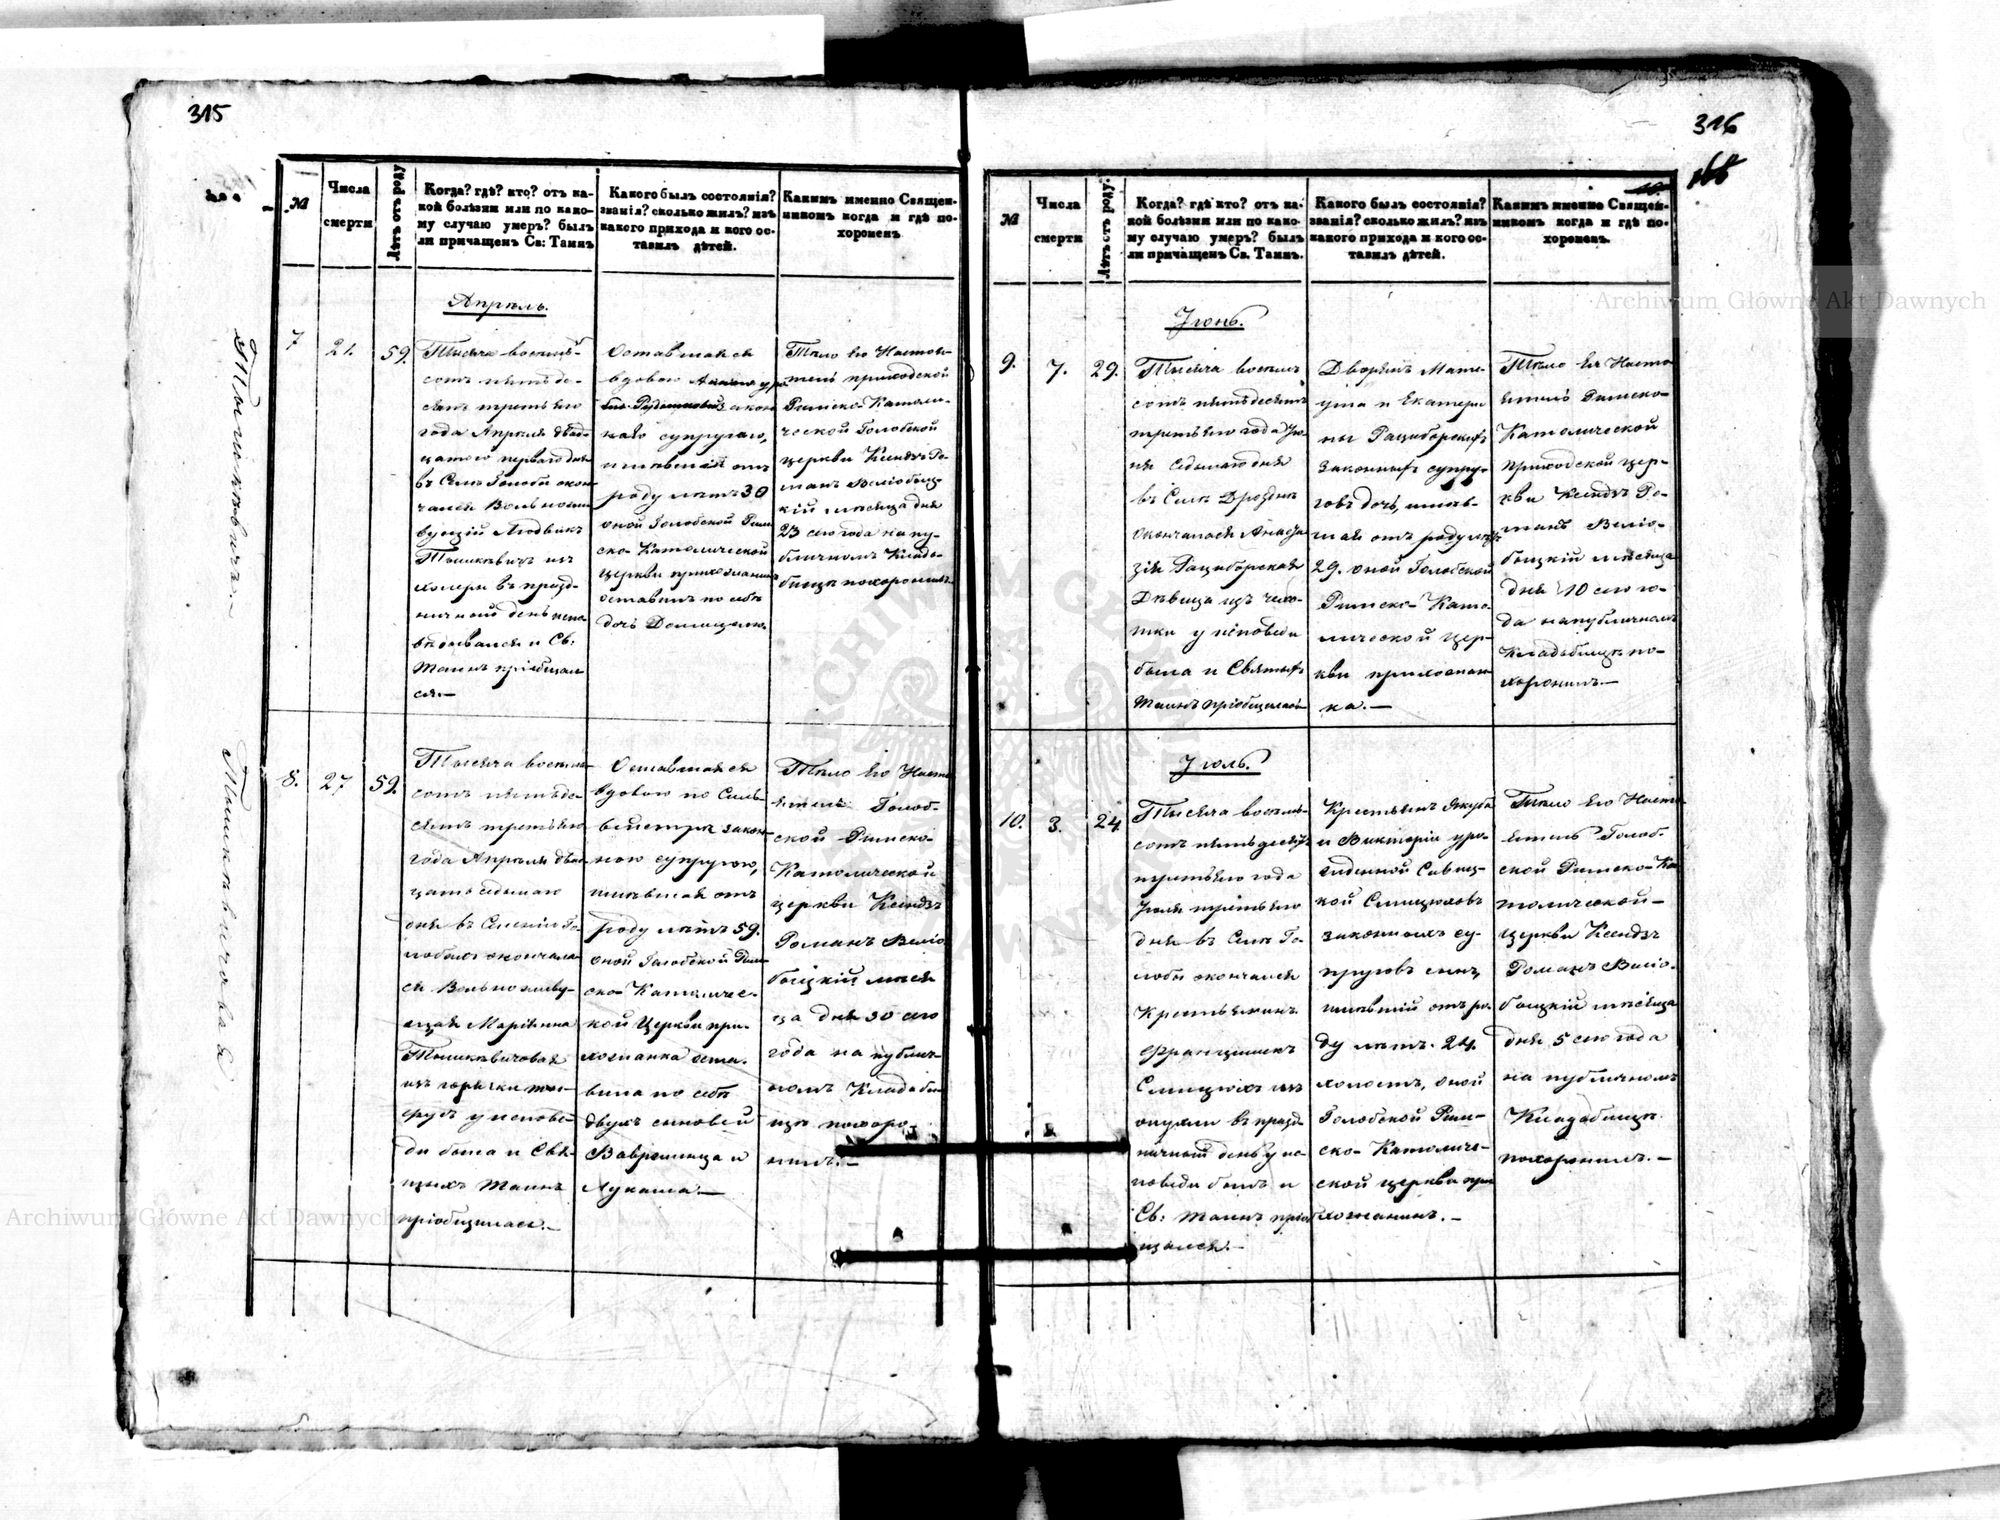 315
№
Числа
смерти
Лѣтъ отъ роду
Когда? гдѣ? кто? отъ ка-
кой болѣзни или по како-
му случаю умеръ? былъ
ли причащенъ Св: Таинъ
Какого былъ состоянія?
званія? сколько жилъ? изъ
какого прихода и кого ос-
тавилъ дѣтей.
Какимъ именно Священ-
никомъ когда и гдѣ по-
хороненъ
Апрѣль.
7
21.
59.
Тысяча восемь-
сотъ пятьде-
сятъ третьяго
года Апрѣля двад-
цатого перваго дня
въ Селѣ Голобы окон-
чался Вольножи-
вущій Людвикъ
Тышкевичъ изъ
холеры въ празд-
ничный день испо-
вѣдывался и Св:
Таинъ пріобщал-
ся.—
Оставшаяся
вдовою
супругою,
имѣвшій отъ
роду лѣтъ 30
оной Голобской Рим-
ско-Католической
церкви прихожанинъ
оставилъ по себѣ
дочь Домицелю.
Тѣло его Настоя-
тель приходской
Римско-Католи-
ческой Голобской
церкви Ксендзъ Ро-
манъ
мѣсяца дня
23 сего года на пу-
бличномъ Кладо-
бищѣ похоронилъ.
8.
27
59.
Тысяча восемь-
сотъ пятьде-
сятъ третьяго
года Апрѣля двад-
цать седьмаго
дня въ Селеніи Го-
лобахъ окончала-
ся Вольноживу-
щая Маріянна
Тышкевичовая
изъ горячки
у исповѣ-
ди была и Свя-
тыхъ Таинъ
пріобщилась.—
Оставшаяся
вдовою по Силь-
вестрѣ закон-
ною супругою,
имѣвшая отъ
роду лѣтъ 59.
оной Голобской Рим-
ско-Католичес-
кой Церкви при-
хожанка оста-
вила по себѣ
двухъ сыновей
Вавренца и
Лукаша.—
Тѣло его Насто-
ятель Голоб-
ской Римско-
Католической
церкви Ксендзъ
Романъ
мѣся-
ца дня 30 сего
года на публич-
номъ Кладоби-
щѣ похоро-
нилъ.—
316
№
Числа
смерти
Лѣтъ отъ роду.
Когда? гдѣ? кто? отъ ка-
кой болѣзни или по како-
му случаю умеръ? былъ
ли причащенъ Св. Таинъ.
Какого былъ состоянія?
званія? сколько жилъ? изъ
какого прихода и кого ос-
тавилъ дѣтей.
Какимъ именно Священ-
никомъ когда и гдѣ по-
хороненъ.
Іюнь.
9.
7.
29.
Тысяча восемь
сотъ пятьдесятъ
третьяго года Ію-
ня седьмаго дня
въ Селѣ
окончалася
Рациборская
Дѣвица изъ чахо-
тки у исповѣди
была и Святыхъ
Таинъ пріобщилась
Дворянъ Мате-
уша и Екатери
ны Рациборскихъ
законныхъ супру-
говъ дочь, имѣв-
шая отъ роду лѣтъ
29. оной Голобской
Римско-Като-
лической цер-
кви прихожан-
ка.—
Тѣло ея Насто
ятель Римско-
Католической
приходской цер-
кви Ксендзъ Ро-
манъ
мѣсяца
дня 10 сего го-
да на публичномъ
Кладобищѣ по-
хоронилъ.—
Іюль.
10.
3.
24.
Тысяча восемь-
сотъ пятьдесятъ
третьяго года
Іюля третьяго
дня въ Селѣ Го-
лобы окончался
Крестьянинъ
Францишекъ
изъ
опухли въ празд-
ничный день у ис-
повѣди былъ и
Св: Таинъ пріоб-
щался.—
Крестьянъ Якуба
и Викторіи уро-
жденной
законныхъ су-
пруговъ сынъ,
имѣвшій отъ ро-
ду лѣтъ 24.
холостъ, оной
Голобской Рим-
ско-Католиче-
ской церкви при-
хожанинъ.—
Тѣло его Насто-
ятель Голоб-
ской Римско-Ка-
толической
церкви Ксендзъ
Романъ
мѣсяца
дня 5 сего года
на публичномъ
Кладобищѣ
похоронилъ.—
Archiwum Główne Akt Dawnych
Archiwum Główne Akt Dawnych